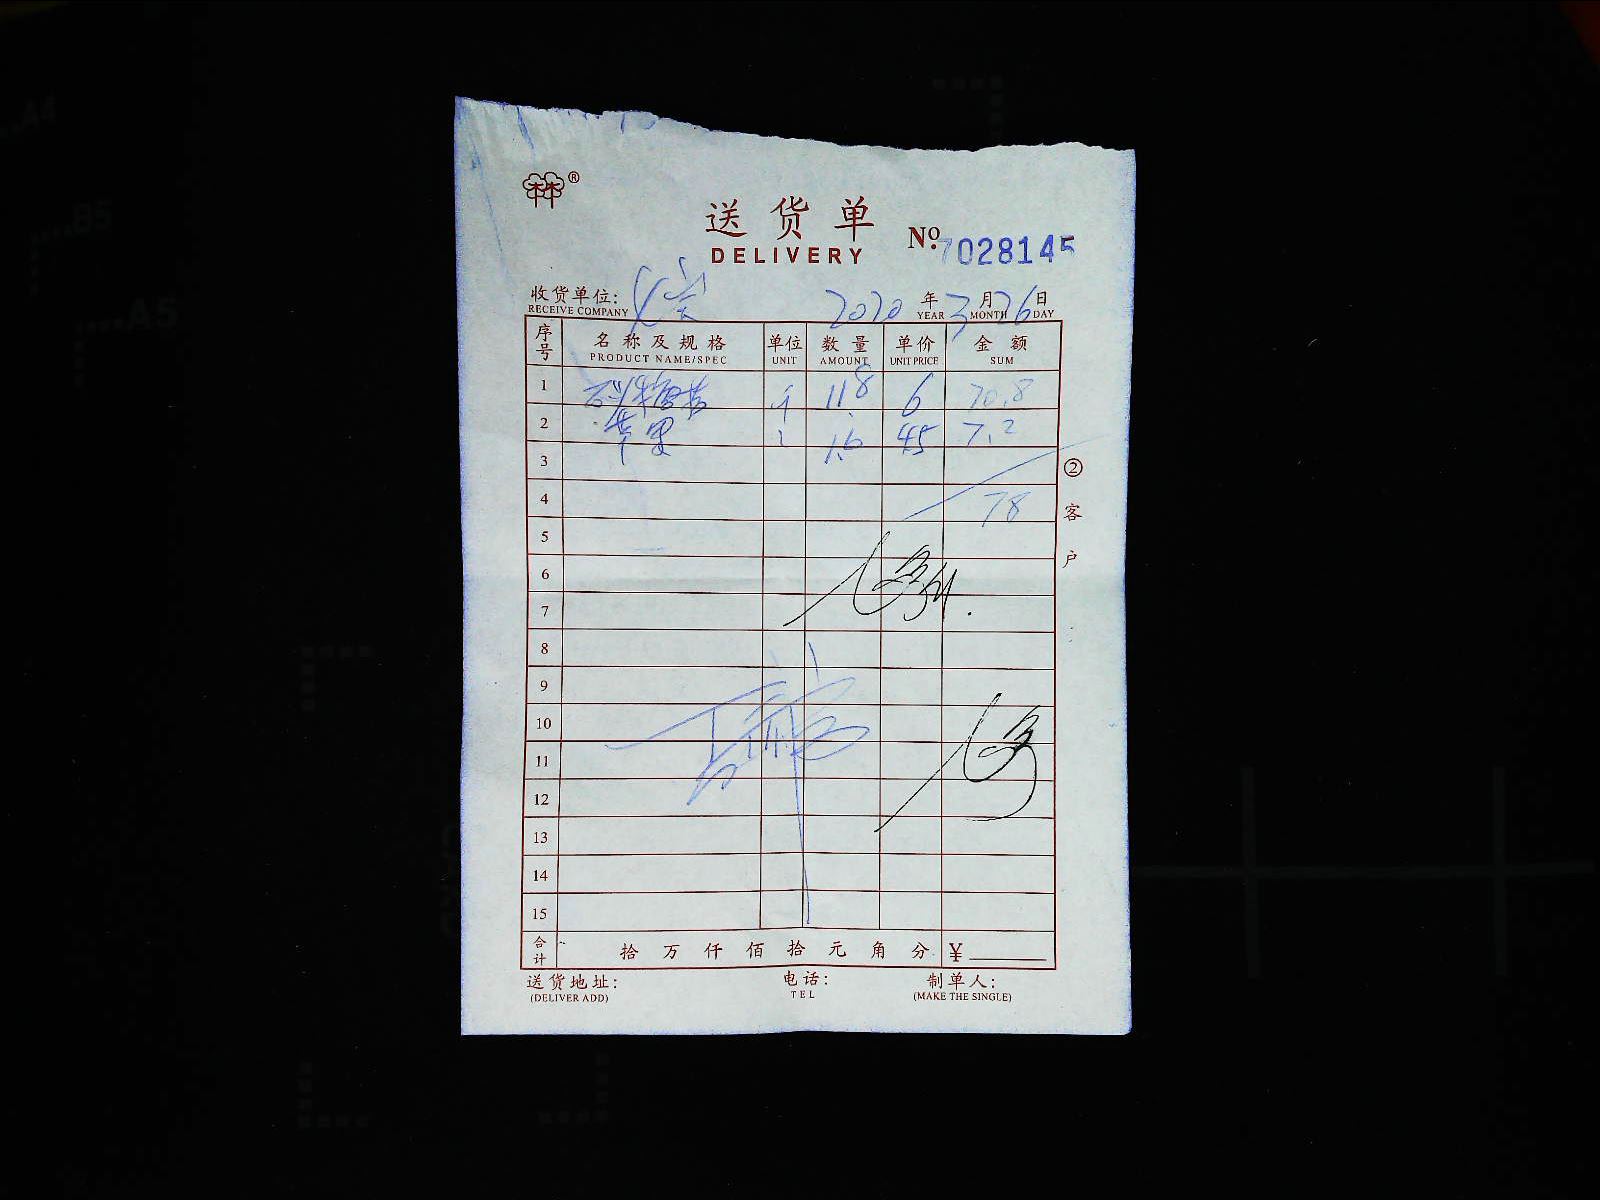 送货单
DELIVERY
No. 7028145
收货单位:
RECEIVE COMPANY
2020 年 3 月 26 日
YEAR MONTH DAY
序号 名称及规格 单位 数量 单价 金额
PRODUCT NAME/SPEC UNIT AMOUNT UNIT PRICE SUM
1 斤 11.8 6 70.8
2 苹果 1.6 4.5 7.2
3
4 78
5
6
7
8
9
10
11
12
13
14
15
②客户
合计 拾 万 仟 佰 拾 元 角 分 ¥
送货地址: 电话: 制单人:
(DELIVER ADD) TEL (MAKE THE SINGLE)